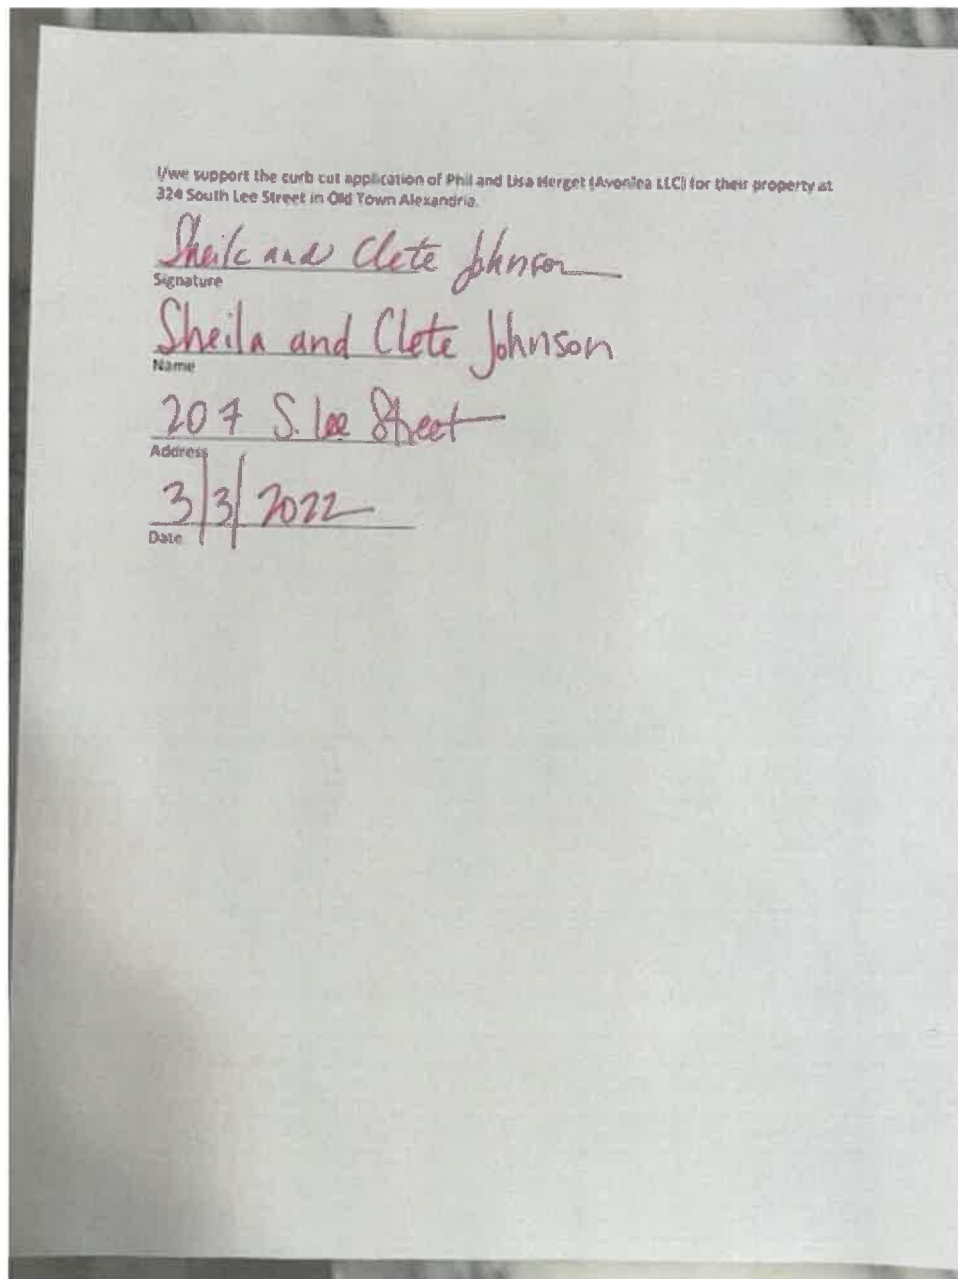 I/we support the curb cut application of Phil and Lisa Herget (Avonlea LLC) for their property at
324 South Lee Street in Old Town Alexandria.
Sheila and Clete Johnson
Signature
Sheila and Clete Johnson
Name
207 S. Lee Street
Address
3/3/2022
Date